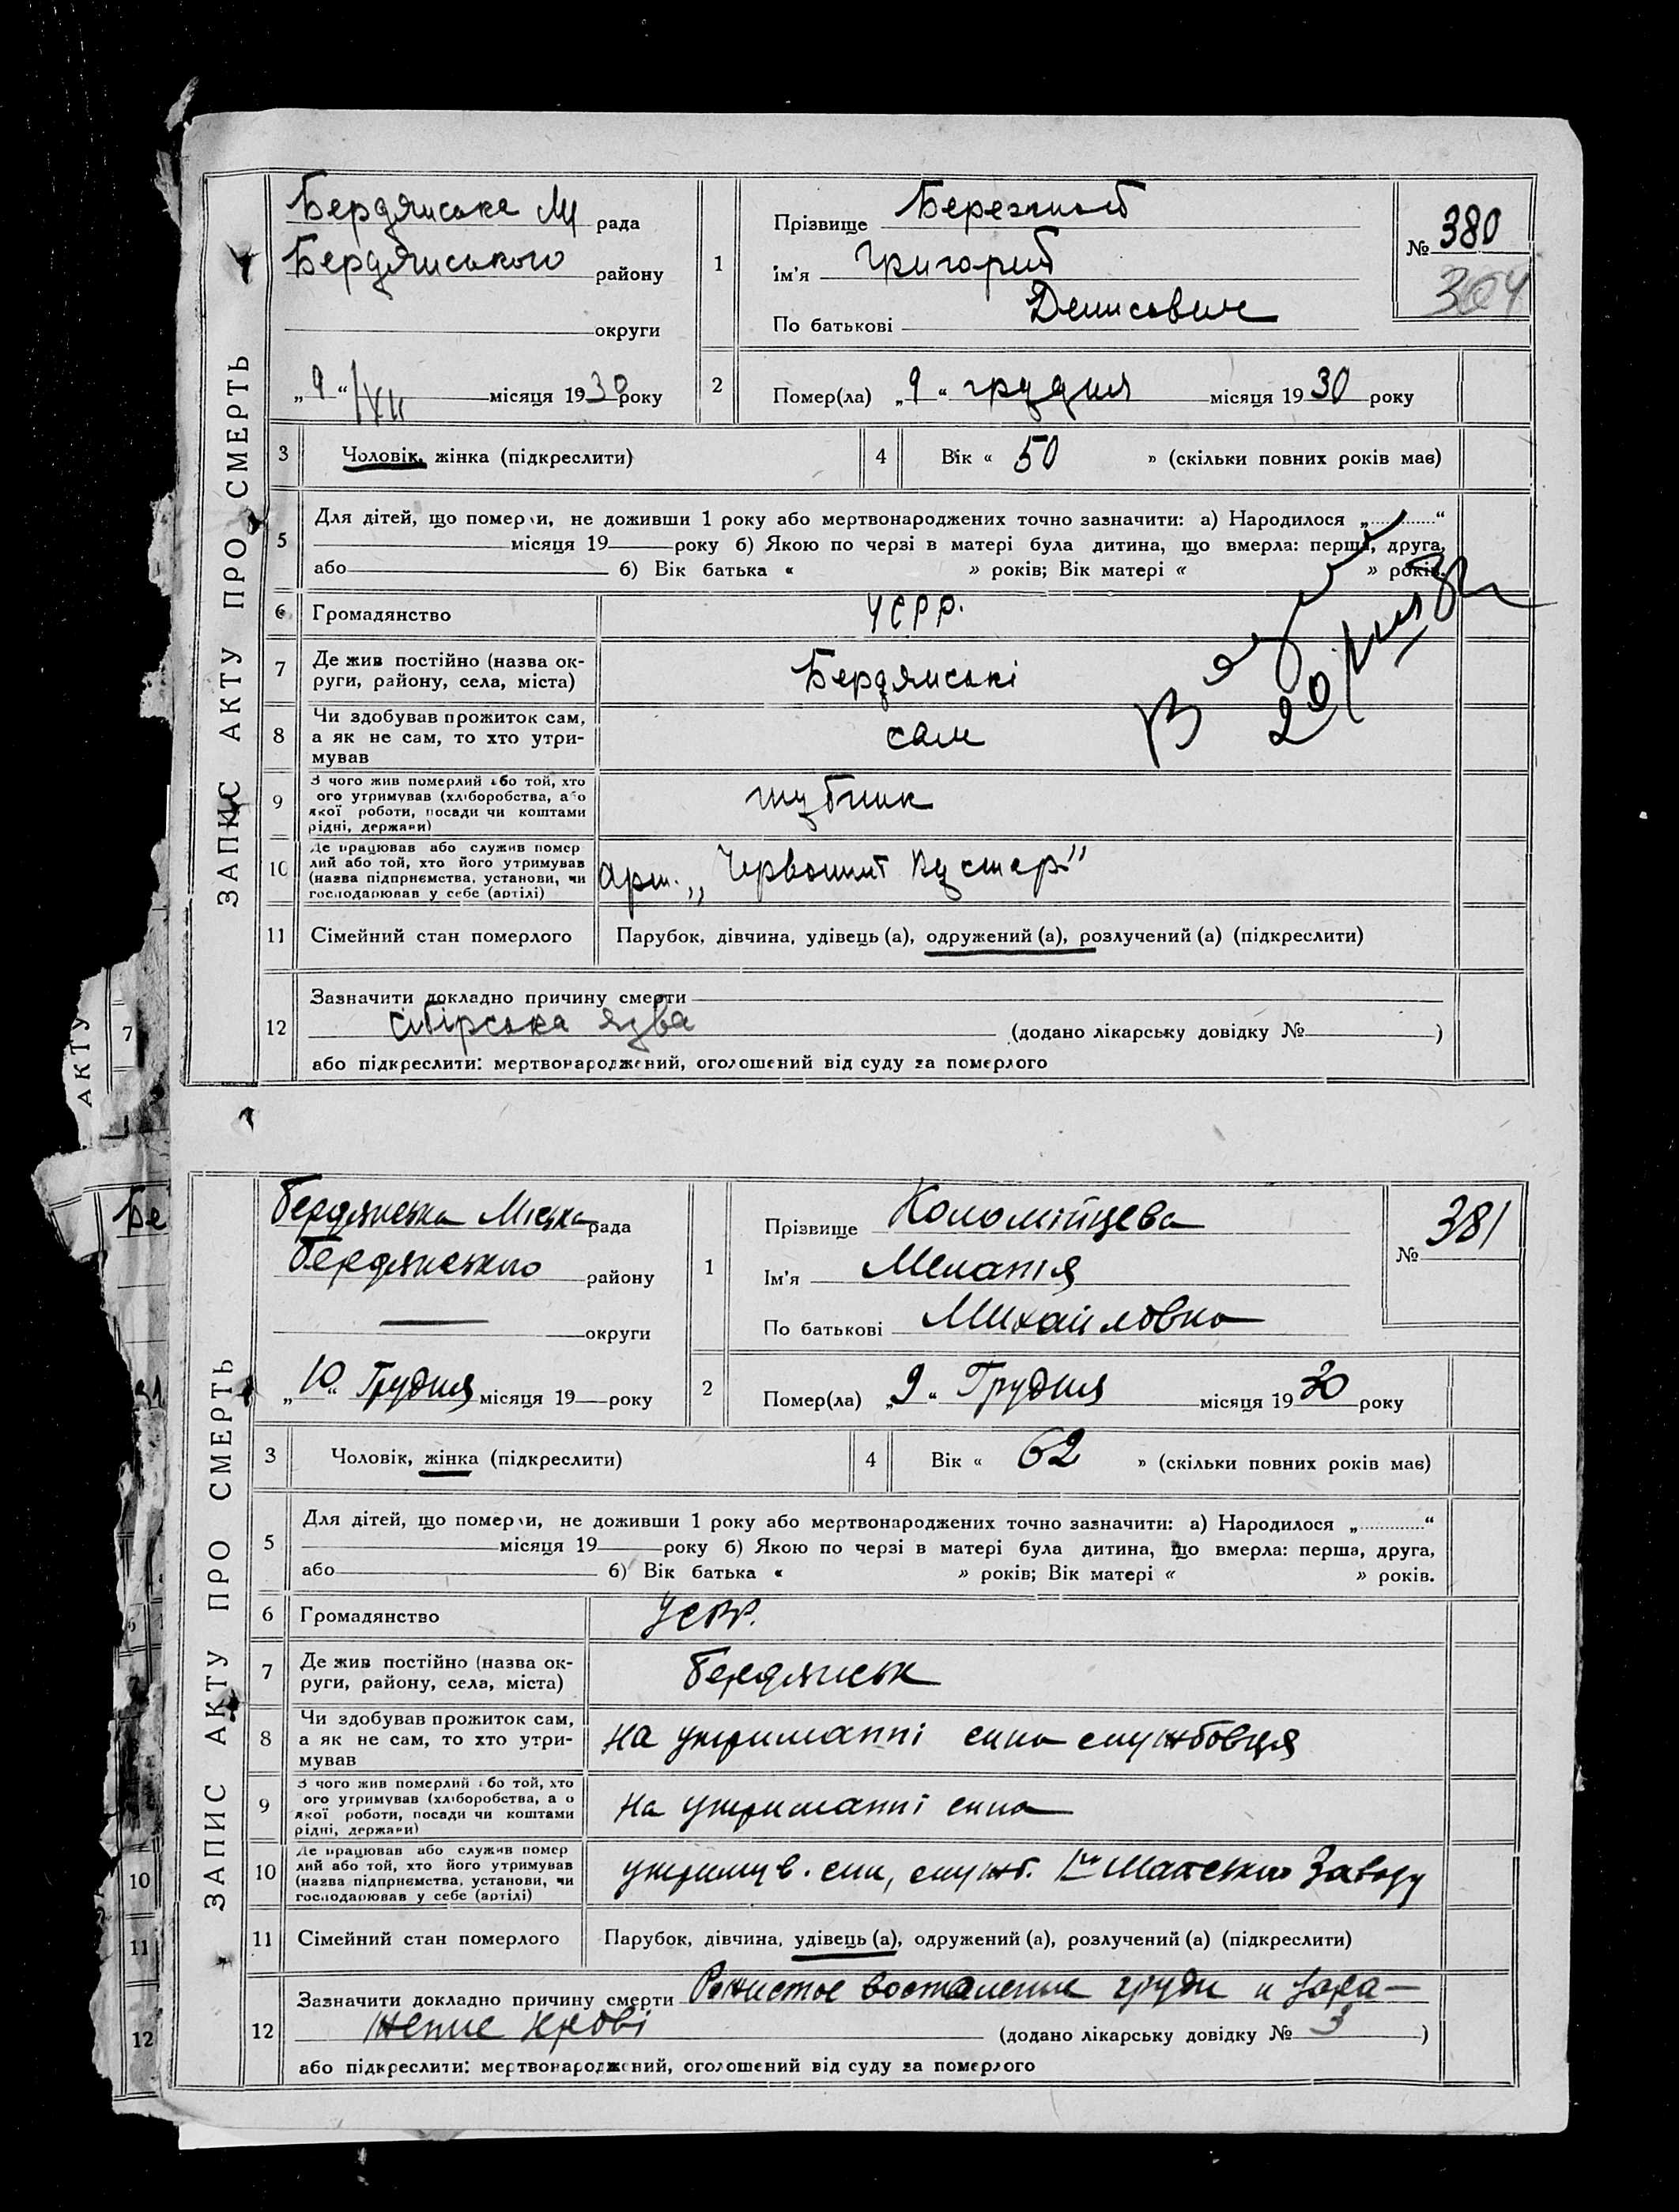 ЗАПИС АКТУ ПРО СМЕРТЬ
Бердянська М рада
Бердянського району
округи
„9“/XII місяця 1930 року
1
Прізвище Бережной
Ім'я Григорий
По батькові Денисович
№ 380
304
2
Помер(ла) „9“ грудня місяця 1930 року
3 Чоловік, жінка (підкреслити)
4 Вік « 50 » (скільки повних років мав)
5
Для дітей, що померли, не доживши 1 року або мертвонароджених точно зазначити: а) Народилося „............“
місяця 19 року б) Якою по черзі в матері була дитина, що вмерла: перша, друга,
або б) Вік батька « » років; Вік матері « » років.
6 Громадянство УСРР.
7 Де жив постійно (назва ок-
руги, району, села, міста)
Бердянські
20/
8 Чи здобував прожиток сам,
а як не сам, то хто утри-
мував
сам
9 З чого жив померлий або той, хто
ого утримував (хліборобства, або
якої роботи, посади чи коштами
рідні, держави)
шубник
10 Де працював або служив помер
лий або той, хто його утримував
(назва підприємства, установи, чи
господарював у себе (артілі)
арт. „Червоний Кустарь"
11 Сімейний стан померлого Парубок, дівчина, удівець (а), одружений (а), розлучений (а) (підкреслити)
12 Зазначити докладно причину смерти
сібірська язва (додано лікарську довідку № )
або підкреслити: мертвонароджений, оголошений від суду за померлого
АКТУ
7
ЗАПИС АКТУ ПРО СМЕРТЬ
Бердянська Міська рада
Бердянського району
округи
„10“ Грудня місяця 19 року
1
Прізвище Коломійцева
Ім'я Меланія
По батькові Михайловна
№ 381
2
Помер(ла) „9“ Грудня місяця 1930 року
3 Чоловік, жінка (підкреслити)
4 Вік « 62 » (скільки повних років мав)
5
Для дітей, що померли, не доживши 1 року або мертвонароджених точно зазначити: а) Народилося „............“
місяця 19 року б) Якою по черзі в матері була дитина, що вмерла: перша, друга,
або б) Вік батька « » років; Вік матері « » років.
6 Громадянство УСРР.
7 Де жив постійно (назва ок-
руги, району, села, міста)
Бердянськ
8 Чи здобував прожиток сам,
а як не сам, то хто утри-
мував
на утриманні сина службовця
9 З чого жив померлий або той, хто
ого утримував (хліборобства, а о
якої роботи, посади чи коштами
рідні, держави)
на утриманні сина
10 Де працював або служив помер
лий або той, хто його утримував
(назва підприємства, установи, чи
господарював у себе (артілі)
утримув. син, служб. Заводу
11 Сімейний стан померлого Парубок, дівчина, удівець (а), одружений (а), розлучений (а) (підкреслити)
12 Зазначити докладно причину смерти Рожистое воспаление груди и зара-
жение крові (додано лікарську довідку № 3 )
або підкреслити: мертвонароджений, оголошений від суду за померлого
Бе
10
11
12